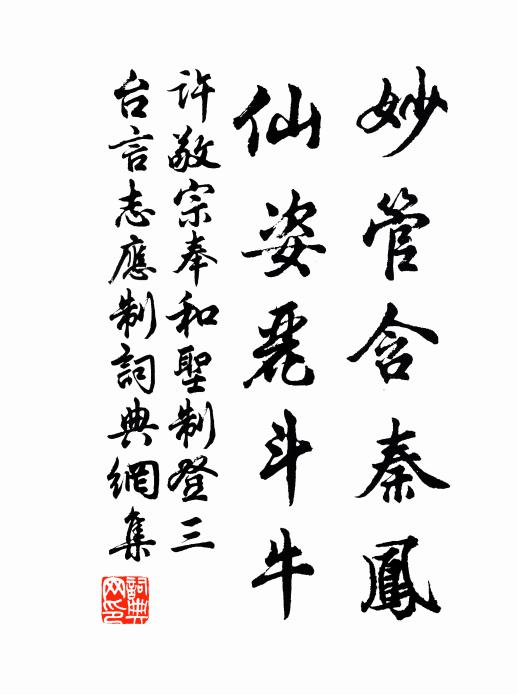 妙管含秦鳳
仙姿麗斗牛
許敬宗奉和聖制登三
台言志應制詞典網集
詞典網印